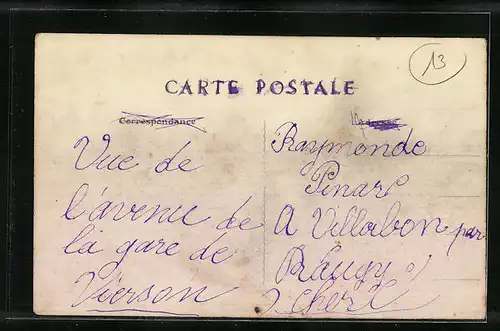 13
CARTE POSTALE
Correspondance
Vue de
l'avenu de
la gare de
Vierson
Raymonde
Pinard
A Villabon par
Baugy
Cher